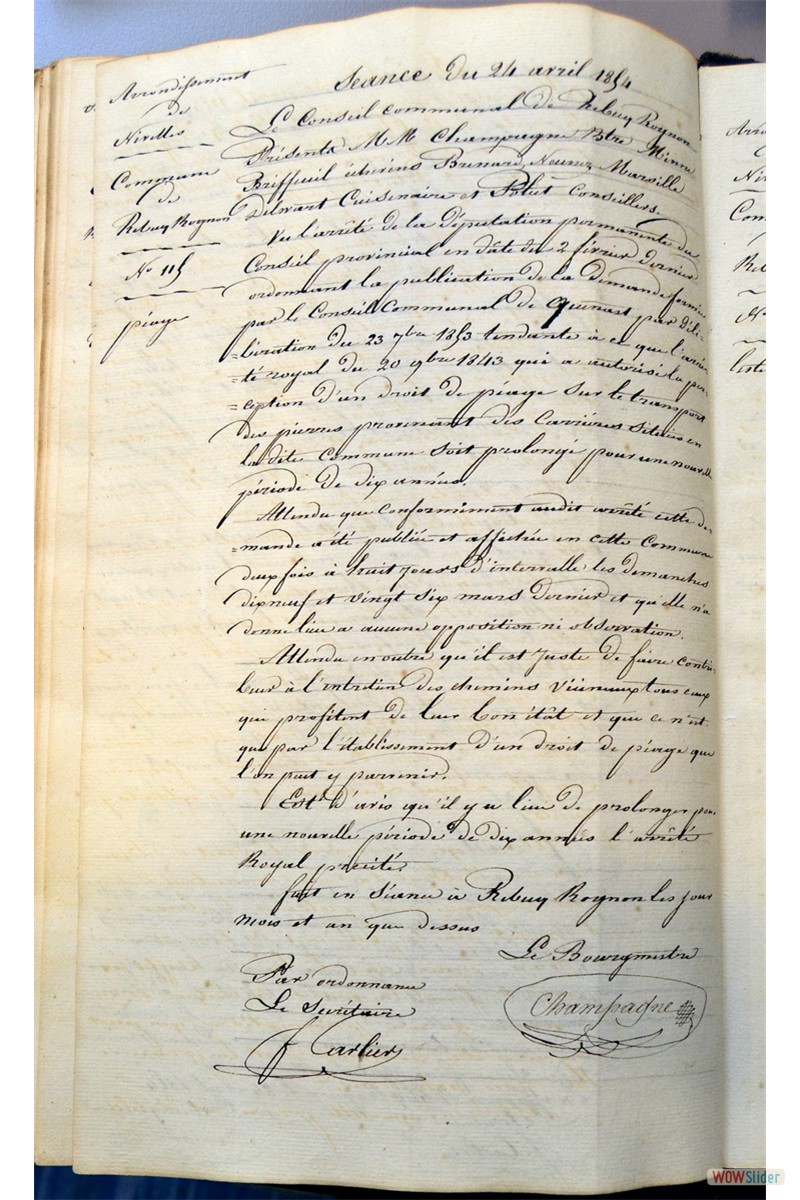 Arrondissement
de
Nivelles
Commune
de
Rebecq Rognon
No 115
péage
Séance du 24 avril 1854
Le Conseil communal de Rebecq Rognon
Présents MM Champagne Btre Minne
Briffeuil éckevins Brenard, Marseille
Delwart Cuisenaire et Conseillers.
Vu l'arrêté de la Députation permanente du
Conseil provincial en date du 2 février dernier
ordonnant la publication de la Demande formée
par le Conseil Communal de Quenast par déli-
=bération du 23 7bre 1853 tendante à ce que l'arrê-
=té royal du 20 9bre 1843 qui a autorisé la per-
=ception d'un droit de péage sur le transport
des pierres provenant des Carrières situées en
la dite Commune soit prolongé pour une nouvelle
période de dix années.
Attendu que conformément audit arrêté cette de-
=mande a été publiée et affectée en cette Commune
deux fois à huit jours d'intervalle les demanches
dixneuf et vingt six mars dernier et qu'elle n'a
donné lieu a aucune opposition ni observation.
Attendu en outre qu'il est juste de faire contri-
buer à l'entretien des chemins vicinaux tous ceux
qui profitent de leur bon état et que ce n'est
que par l'établissement d'un droit de péage que
l'on peut y parvenir.
Est d'avis qu'il y a lieu de prolonger pour
une nouvelle période de dix années l'arrêté
Royal précité.
fait en Séance à Rebecq Rognon les jour
mois et an que dessus
Le Bourgmestre
Champagne
Par ordonnance
Le Secrétaire
Carlier
WOWSlider